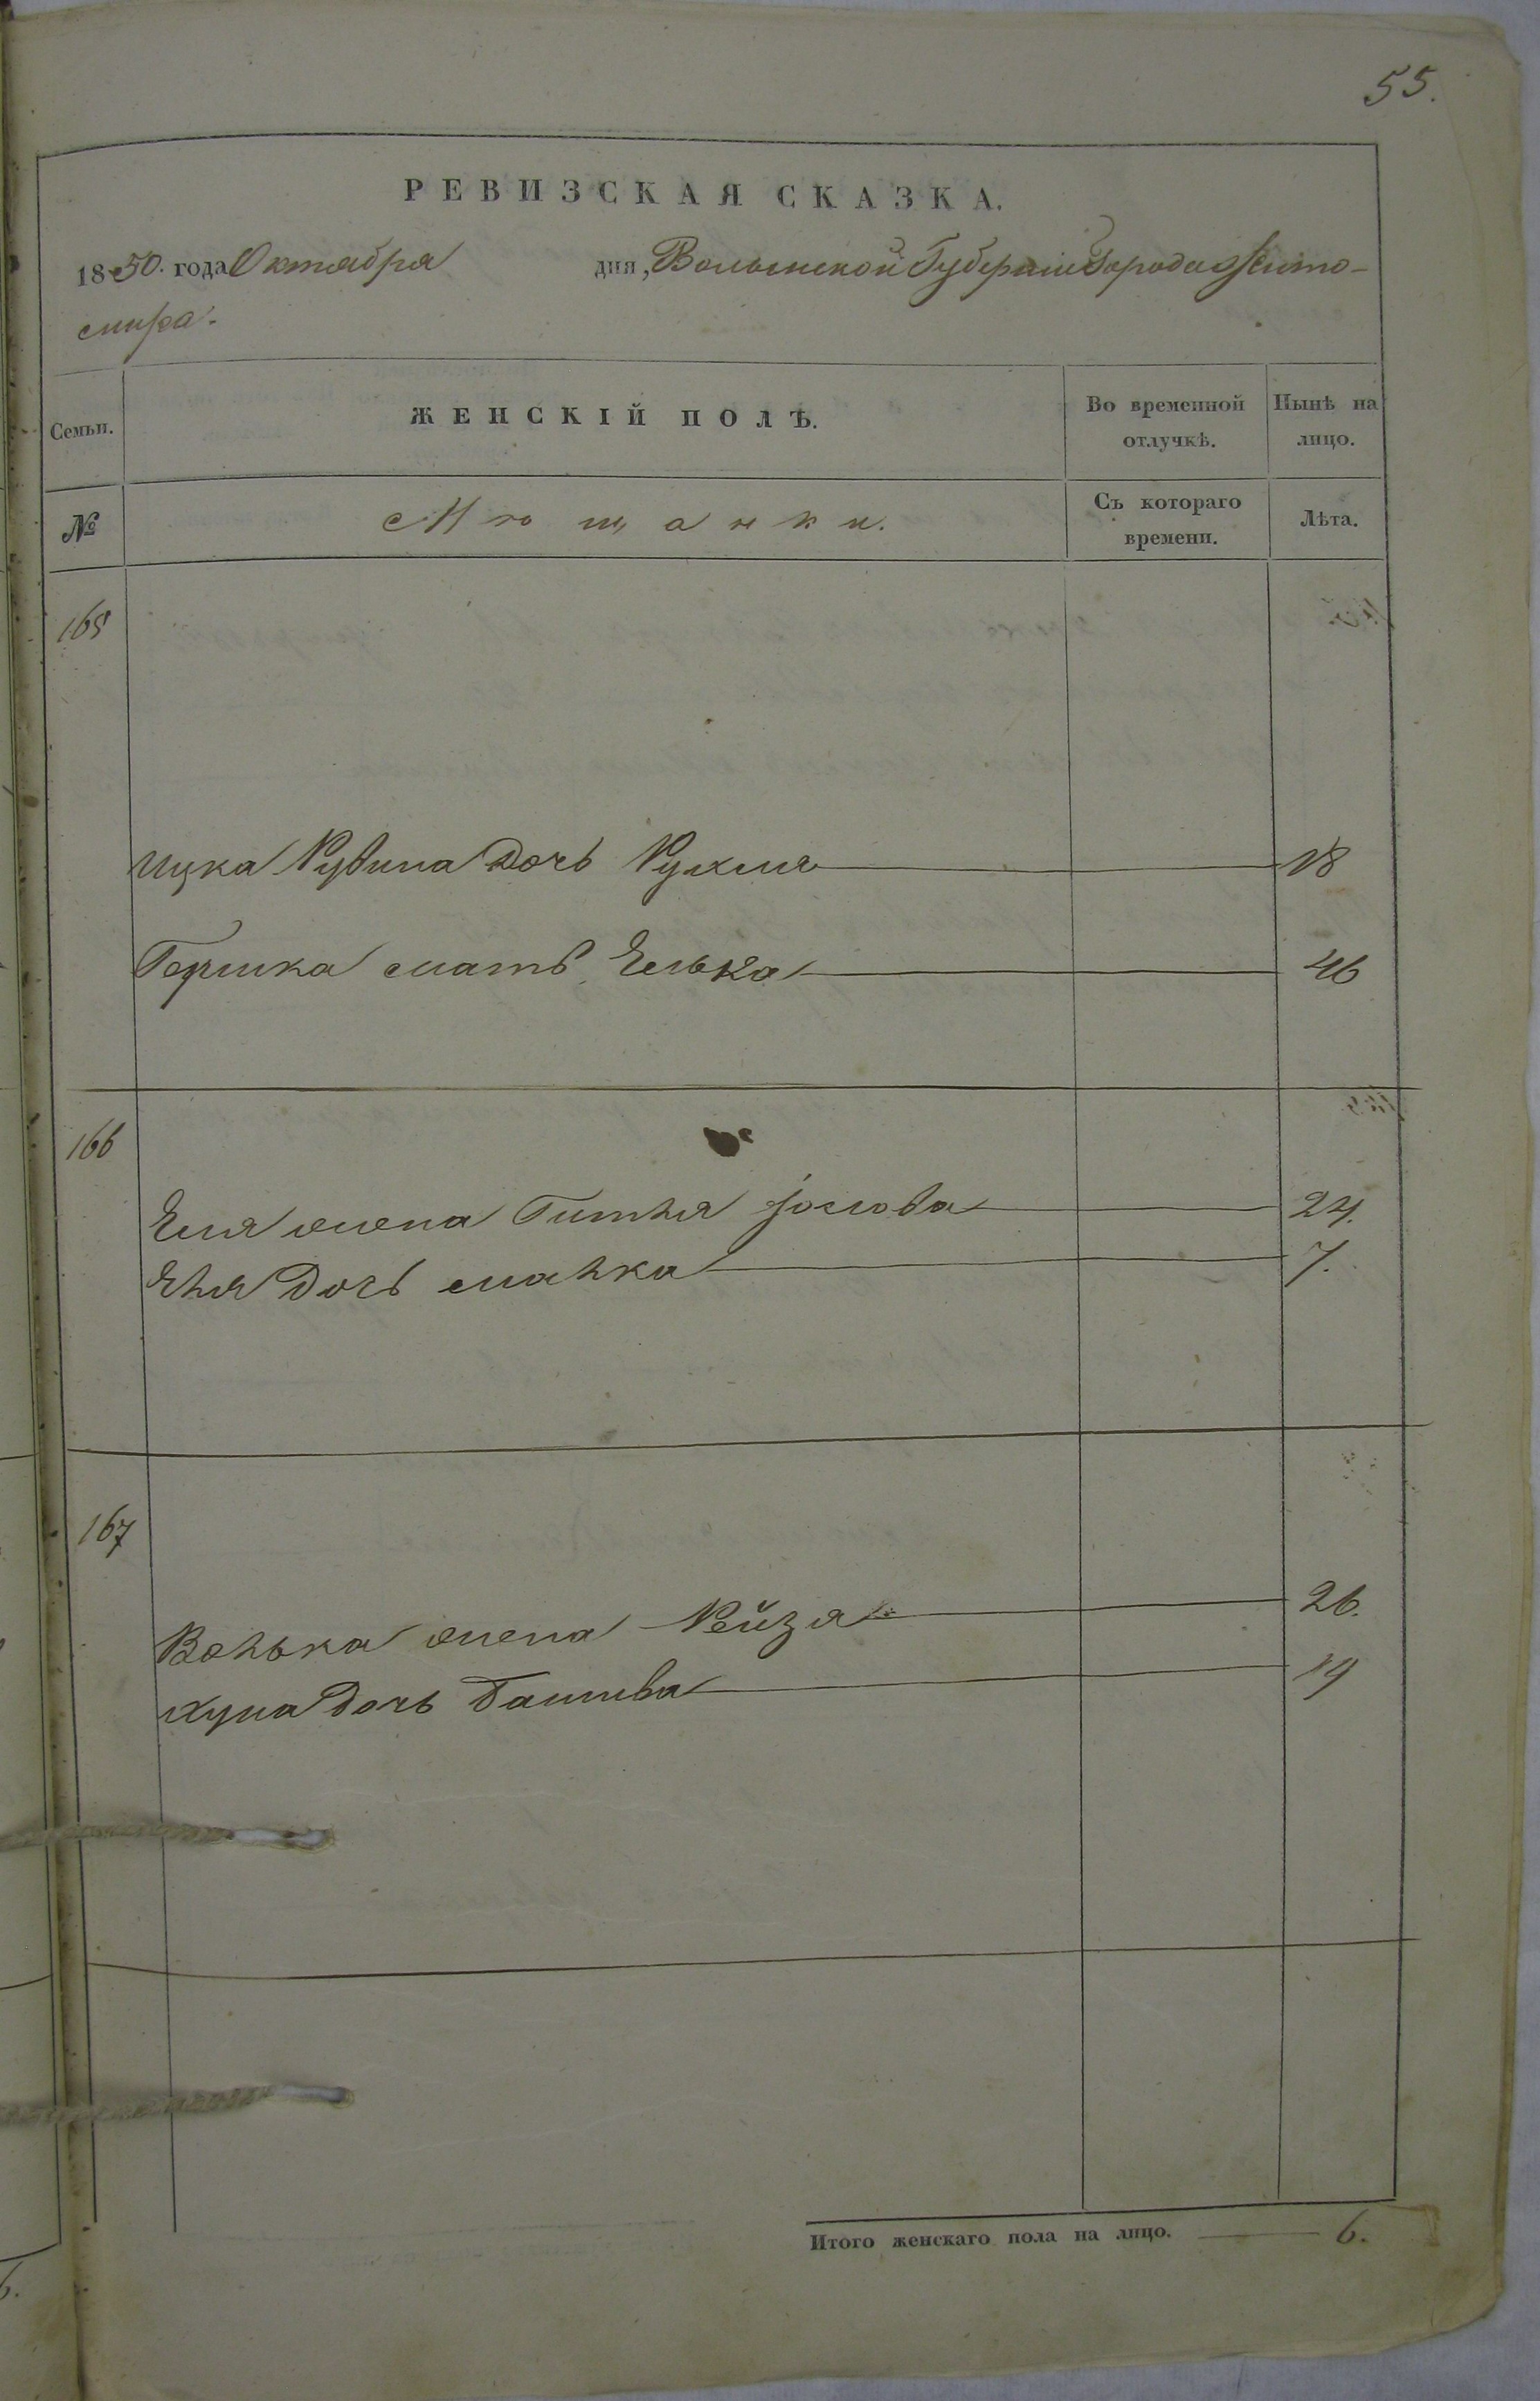 55.
РЕВИЗСКАЯ СКАЗКА.
1850. года Октября дня, Волынской Губернии Города Жито-
мира.
Семьи.
ЖЕНСКІЙ ПОЛЪ.
Во временной отлучкѣ.
Нынѣ на лицо.
№
Мѣщанки.
Съ котораго времени.
Лѣта.
165
Ицка Рувина дочь Рухля 18
Гершка мать Елька 46
166
Еля жена Гитля 24.
Его дочь Малка 7.
167
Волька жена Рейзя 26.
дочь Башива 19
Итого женскаго пола на лицо. 6.